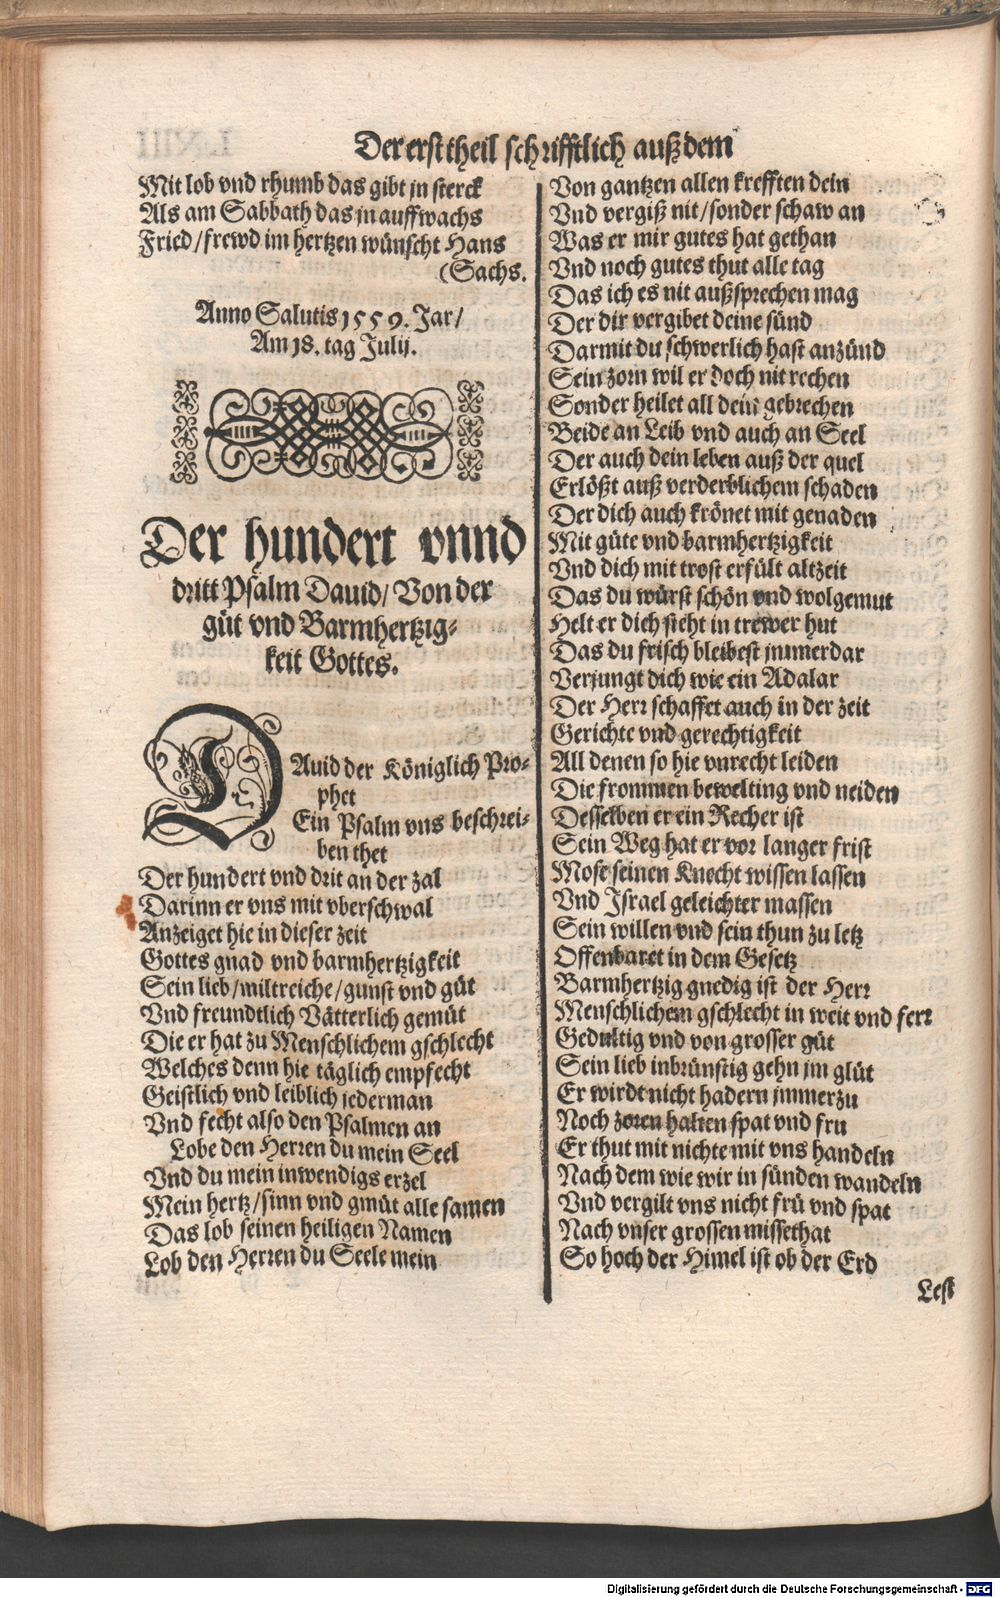 Der erst theil schrifftlich auß dem
Mit lob vnd rhumb das gibt jn sterck
Als am Sabbath das jn auffwachs
Fried/frewd im hertzen wünscht Hans
(Sachs.
Anno Salutis 1559. Jar/
Am 18. tag Julij.
Der hundert vnnd
dritt Psalm Dauid/ Von der
güt vnd Barmhertzig-
keit Gottes.
DAuid der Königlich Pro-
phet
Ein Psalm vns beschrei-
ben thet
Der hundert vnd drit an der zal
Darinn er vns mit vberschwal
Anzeiget hie in dieser zeit
Gottes gnad vnd barmhertzigkeit
Sein lieb/miltreiche/gunst vnd güt
Vnd freundtlich Vätterlich gemüt
Die er hat zu Menschlichem gschlecht
Welches denn hie täglich empfecht
Geistlich vnd leiblich jederman
Vnd fecht also den Psalmen an
Lobe den Herren du mein Seel
Vnd du mein inwendigs erzel
Mein hertz/sinn vnd gmüt alle samen
Das lob seinen heiligen Namen
Lob den Herren du Seele mein
Von gantzen allen krefften dein
Vnd vergiß nit/sonder schaw an
Was er mir gutes hat gethan
Vnd noch gutes thut alle tag
Das ich es nit außsprechen mag
Der dir vergibet deine sünd
Darmit du schwerlich hast anzünd
Sein zorn wil er doch nit rechen
Sonder heilet all dein gebrechen
Beide an Leib vnd auch an Seel
Der auch dein leben auß der quel
Erlößt auß verderblichem schaden
Der dich auch krönet mit genaden
Mit güte vnd barmhertzigkeit
Vnd dich mit trost erfült altzeit
Das du würst schön vnd wolgemut
Helt er dich steht in trewer hut
Das du frisch bleibest jmmerdar
Verjungt dich wie ein Adalar
Der Herr schaffet auch in der zeit
Gerichte vnd gerechtigkeit
All denen so hie vnrecht leiden
Die frommen bewelting vnd neiden
Desselben er ein Recher ist
Sein Weg hat er vor langer frist
Mose seinen Knecht wissen lassen
Vnd Israel geleichter massen
Sein willen vnd sein thun zu letz
Offenbaret in dem Gesetz
Barmhertzig gnedig ist der Herr
Menschlichem gschlecht in weit vnd ferr
Gedultig vnd von grosser güt
Sein lieb inbrünstig gehn jm glüt
Er wirdt nicht hadern jmmerzu
Noch zoren halten spat vnd fru
Er thut mit nichte mit vns handeln
Nach dem wie wir in sünden wandeln
Vnd vergilt vns nicht frü vnd spat
Nach vnser grossen missethat
So hoch der Himel ist ob der Erd
Lest
Digitalisierung gefördert durch die Deutsche Forschungsgemeinschaft - DFG